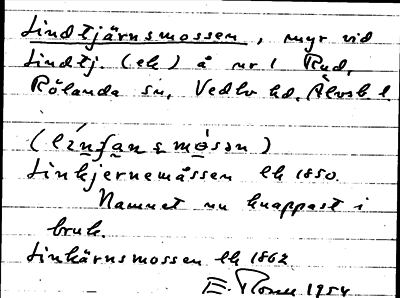 Lindtjärnsmossen, myr vid
Lindtj. (ek) å nr 1 Rud,
Rölanda sn, Vedbo hd, Älvsb. l.
(línʃansmòsən)
Linkjernemåssen ek 1850.
Namnet nu knappast i
bruk.
Linkärnsmossen ek 1862
E. 1954